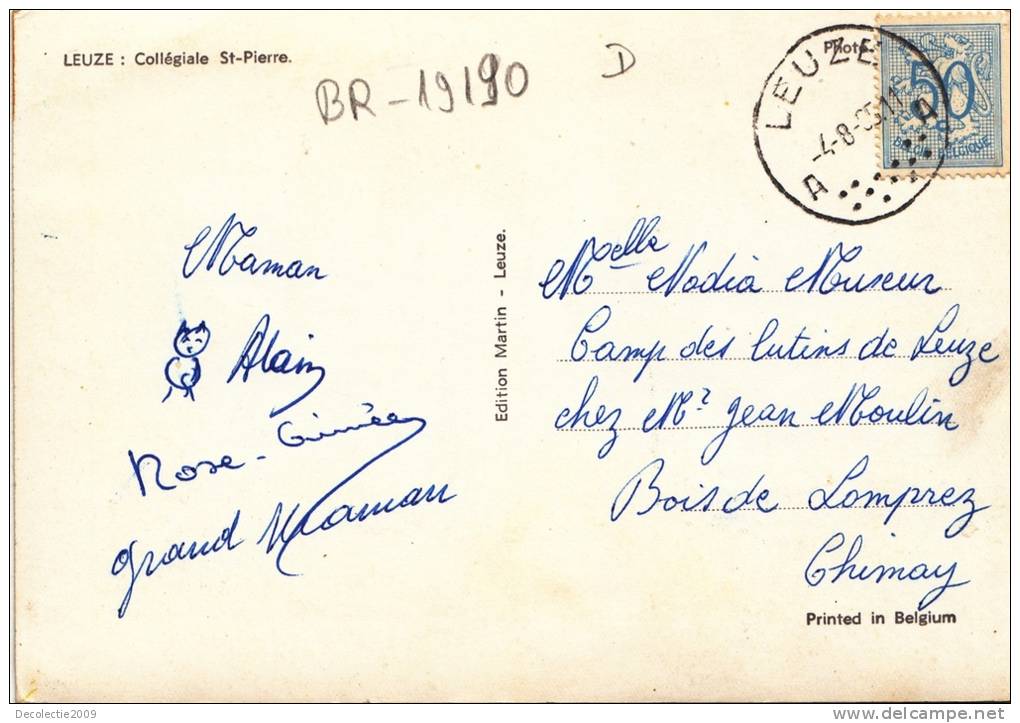 LEUZE : Collégiale St-Pierre.
BR-19190
D
Photo
LEUZE
-4-8-65.11
A A
50
BELGIE BELGIQUE
Maman
Alain
Rose-
grand Maman
Edition Martin - Leuze.
Melle Nadia Museur
Camp des lutins de Leuze
chez Mr Jean Moulin
Bois de Lomprez
Chimay
Printed in Belgium
Decolectie2009
http://www.delcampe.net